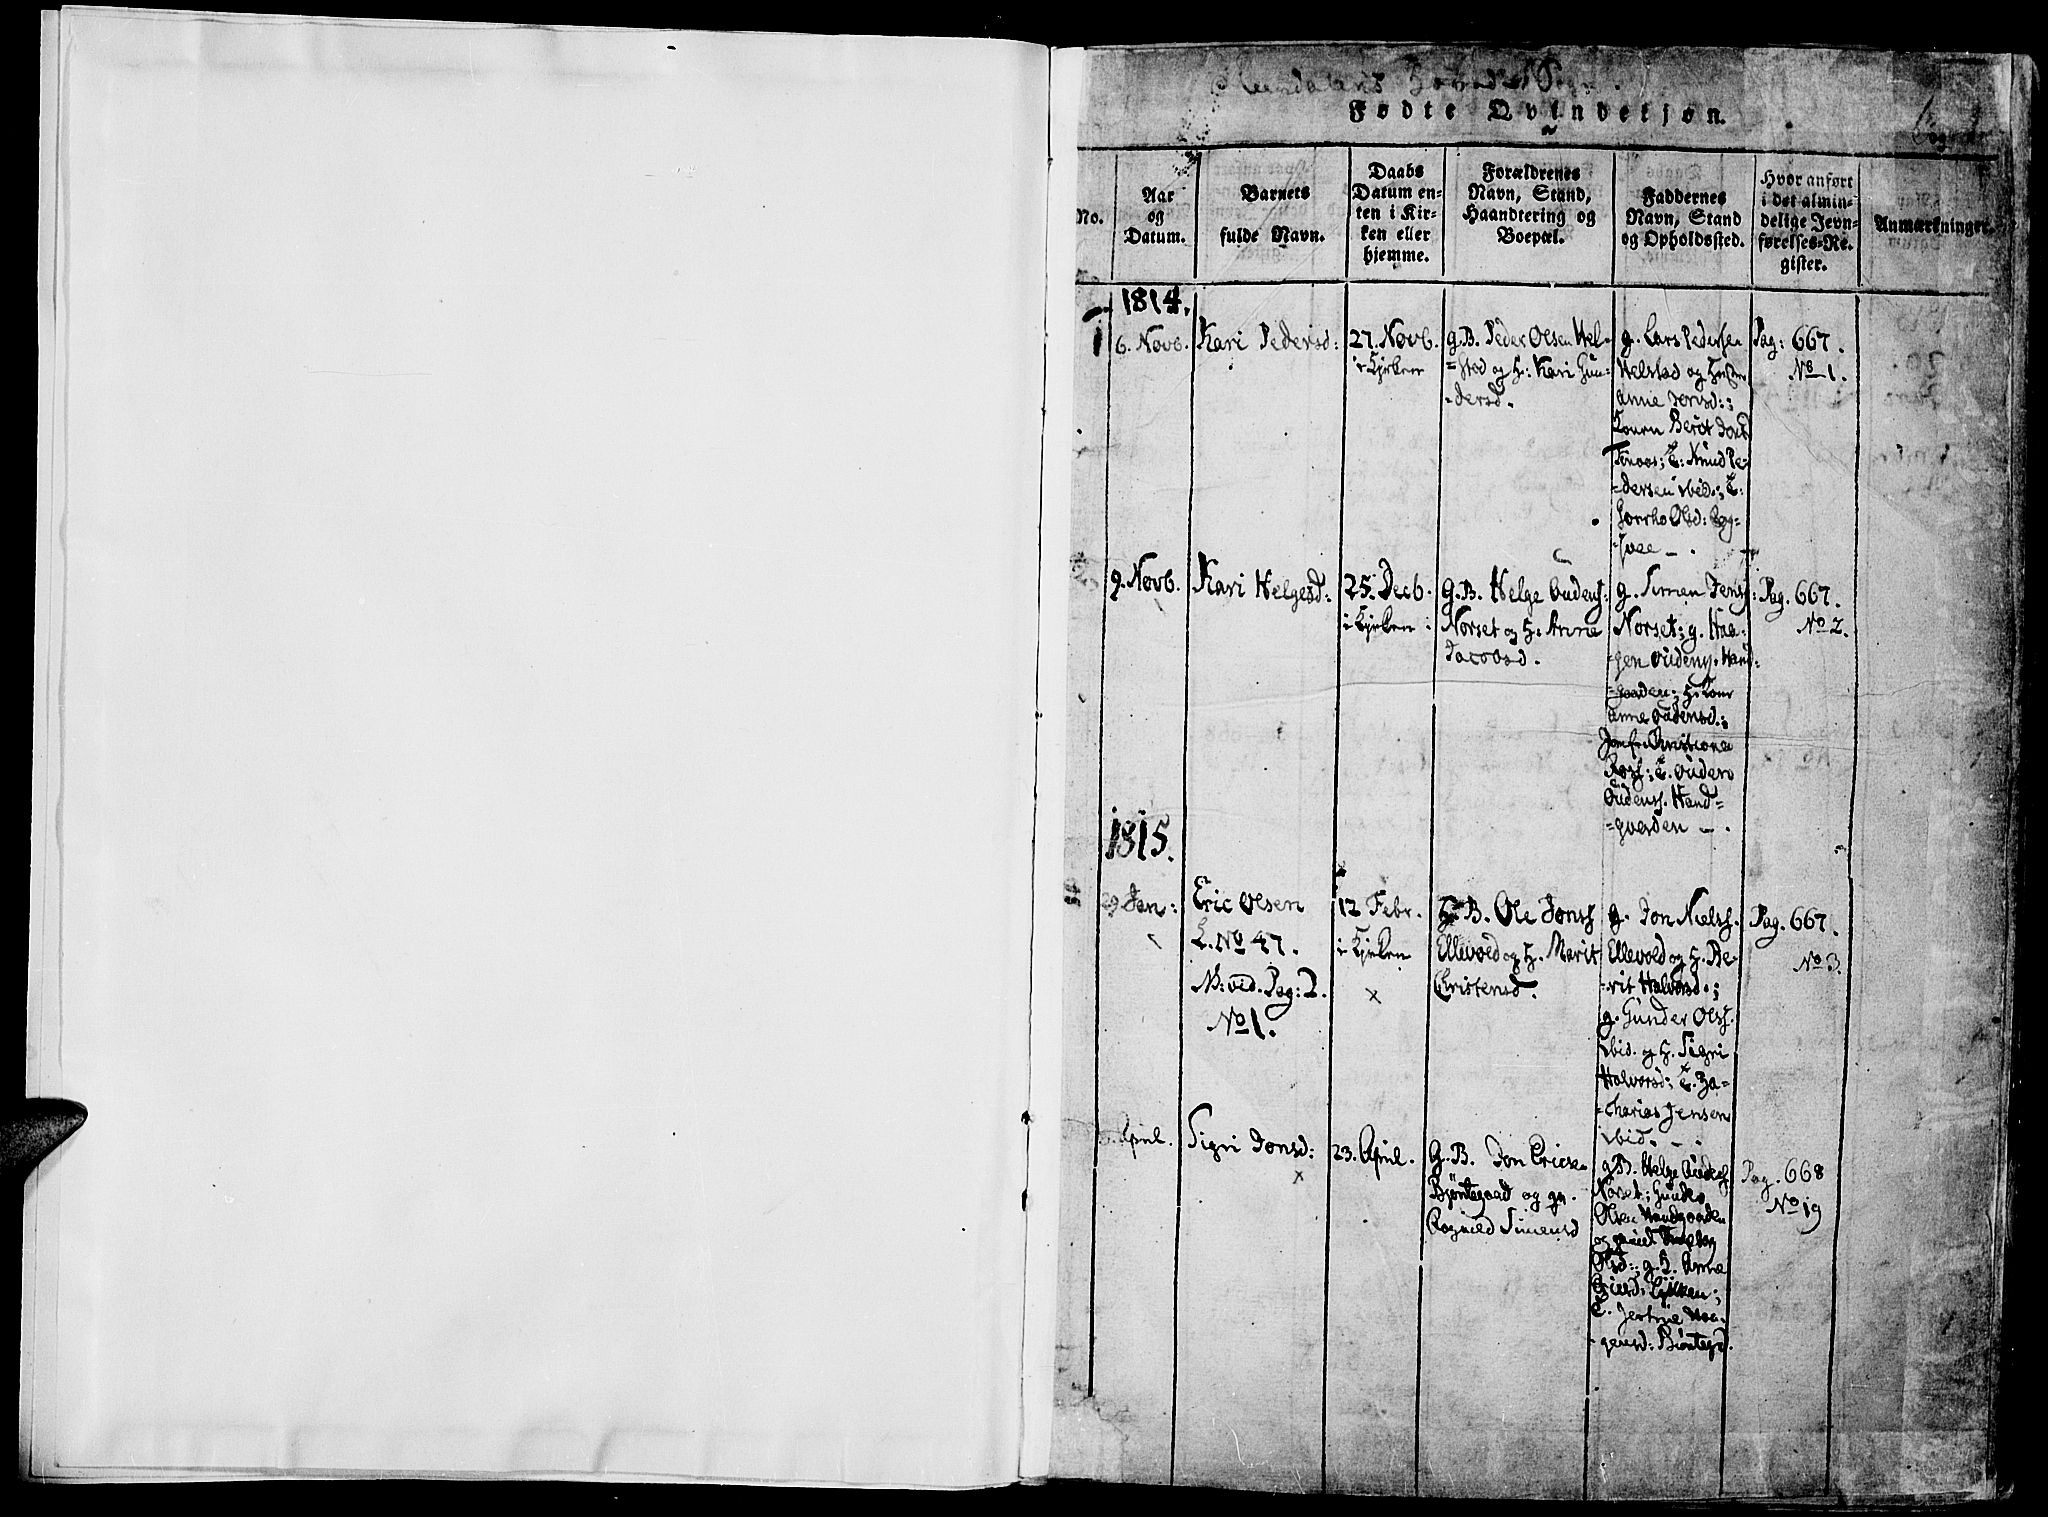 Fødte Qvindekjøn.
No.
Aar
og
Datum.
Barnets
fulde Navn.
Daabs
Datum en-
ten i Kir-
ken eller
hjemme.
Forældrenes
Navn, Stand,
Haandtering og
Boepæl.
Faddernes
Navn, Stand
og Opholdssted.
Hvor anført
i det almin-
delige Jevn-
førelses-Re-
gister.
Anmærkninger.
1814.
1
6. Novb.
Kari Pedersd:
27. Novb.
i Kjrken
g. B. Peder Olsen Hel-
=stad og H: Kari Gun-
=dersd.
g. Lars Pedersen
Helstad og
Anne Jensd:;
Konen Berit
Knud Pe-
=dersen ibid.; E:
Olsd:
Pag: 667.
No 1.
9. Novb.
Kari Helgesd:
25. Decb.
i Kjrken
G. B. Helge Oudens:
Norset og H. Anne
Jacobsd.
g. Simen Jens:
Norset; g. Haa-
=gen Oudens. Hand=
=gaarden; H. Kone
Anne Oudensd.;
Jomfr. Christiane
Ross; E. Ouden
Oudens. Hand=
=gaarden - .
Pag. 667.
No 2.
1815.
29 Jan:
Eric Olsen
L. No 47.
NB: vid. Pag: 2.
No 1.
12 Febr.
i Kjrken
x
G. B. Ole Jons
Ellevold og H. Marit
Christensd.
g. Jon Niels.
Ellevold og H. Be-
=rit Halvorsd.;
g. Gunder Ols.
ibid. og H. Sigri
Halvorsd; E. Za-
=charias Jensen
ibid. - .
Pag. 667.
No 3.
April.
Sigri Jonsd:
x
23. April.
G. B. Jon Ericsen
Bjöntegaard og
Ragnild Simensd
g B. Helge Oudens
Noset; Gunder
Olsen Handgaarden
og
Olsd:, g. H. Anne
Ericsd: Lykken;
E. Jertrue Haa-
=gensd: Biöntegd.
Pag. 668
No 19